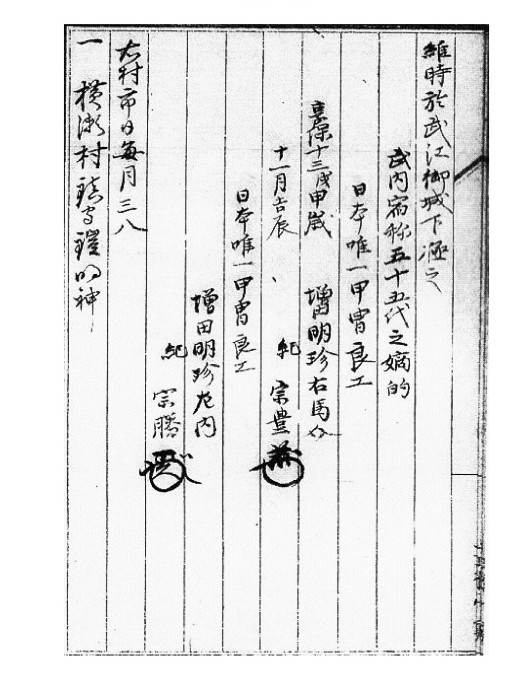 維時於武江御城下極之
武内宿祢五十五代之嫡的
日本唯一甲冑良工
享保十三戊申歳 増田明珍右馬介
十一月吉辰 紀 宗豊
日本唯一甲冑良工
増田明珍左内
紀 宗勝
右村市日毎月三八
一 横瀬村鎮守鎧明神